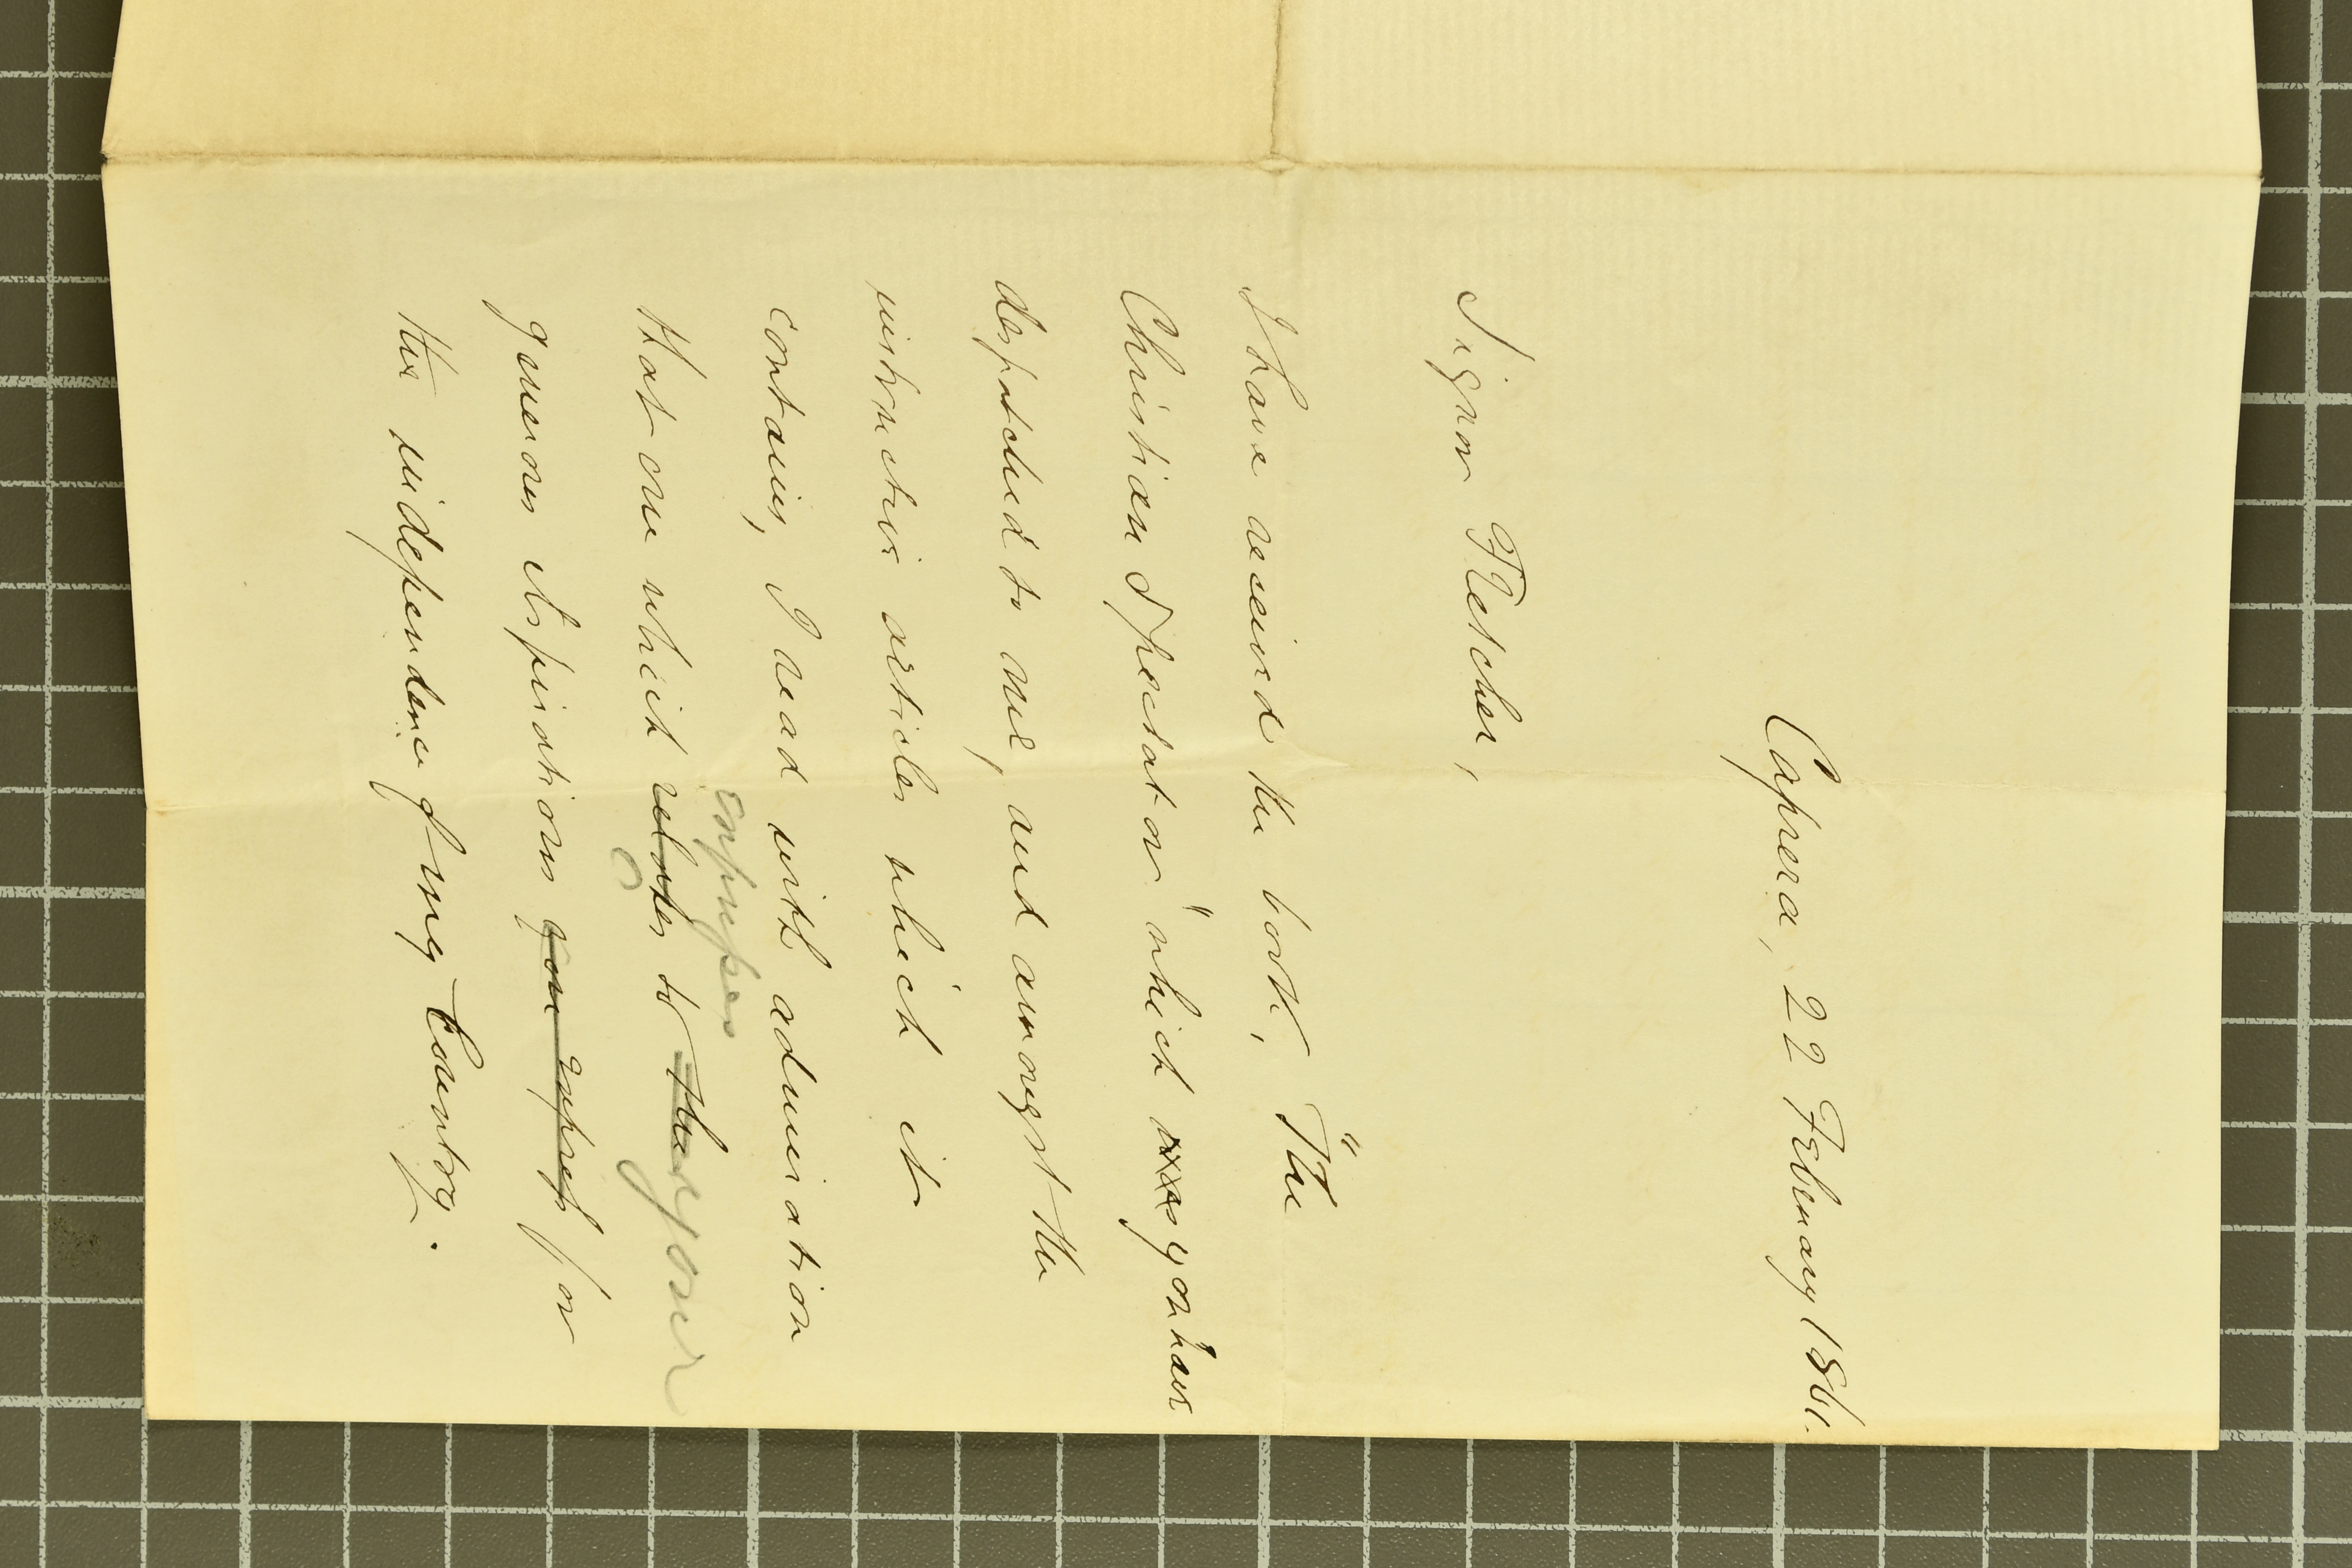 Caprera, 22 February 1861.
Signor Fletcher,
I have received the book, "The
Christian Spectator" which was you have
despatched to me, and amongst the
instructive articles which it
contains, I read with admiration
expresses
that one which relates to the your
generous aspirations you express for
the independence of my Country.